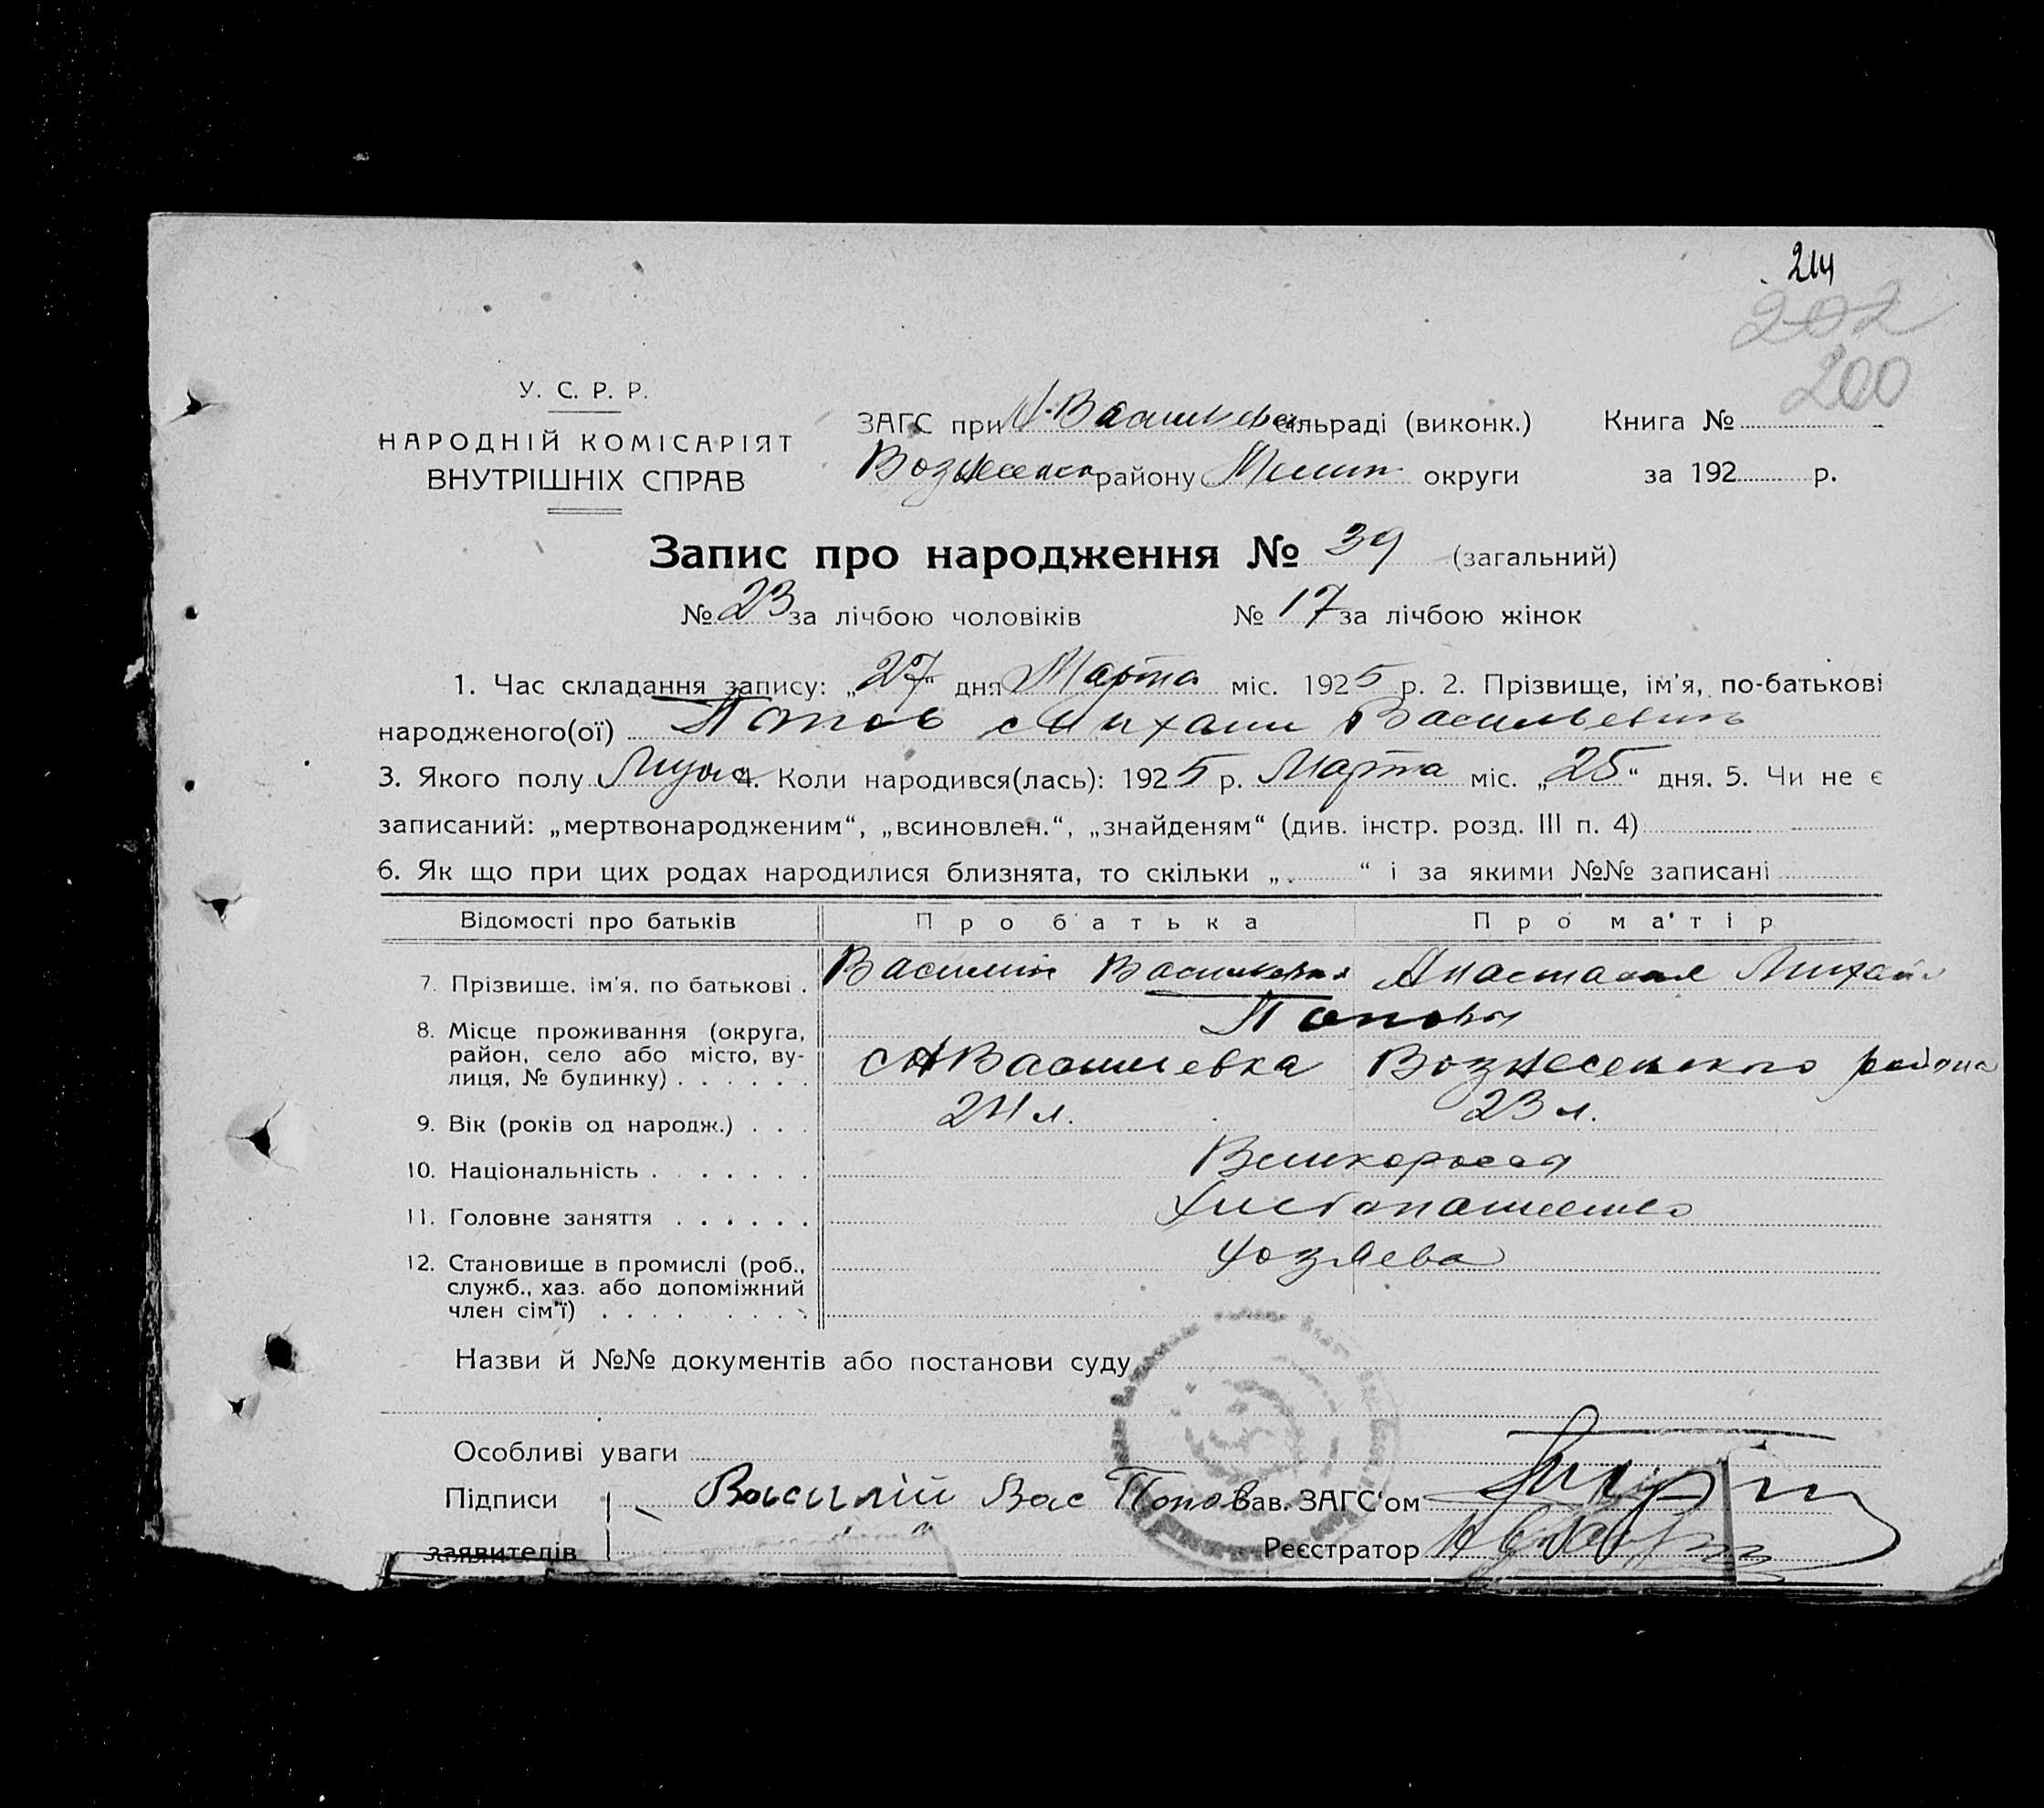 214
202
200
У. С. Р. Р.
НАРОДНІЙ КОМІСАРІЯТ
ВНУТРІШНІХ СПРАВ
ЗАГС при А-Васильев сільраді (виконк.) Книга №
Вознесенск району Мелит округи за 192 р.
Запис про народження № 39 (загальний)
№ 23 за лічбою чоловіків № 17 за лічбою жінок
1. Час складання запису: „27“ дня Марта міс. 1925 р. 2. Прізвище, ім'я, по-батькові
народженого(ої) Попов Михаил Васильевич
3. Якого полу Муж 4. Коли народився(лась): 1925 р. Марта міс. „25“ дня. 5. Чи не є
записаний: „мертвонародженим“, „всиновлен.“, „знайденям“ (див. інстр. розд. III п. 4)
6. Як що при цих родах народилися близнята, то скільки „ “ і за якими №№ записані
Відомості про батьків Про батька Про матір
7. Прізвище, ім'я, по батькові . Василий Васильевич Анастасия Михай
Поповы
8. Місце проживання (округа,
район, село або місто, ву-
лиця, № будинку) . . . . . . с А Васильевка Вознесенского района
9. Вік (років од народж.) . . . 24 л. 23 л.
10. Національність . . . . . . . Великоросся
11. Головне заняття . . . . . . Хлебопашество
12. Становище в промислі (роб.,
служб., хаз. або допоміжний
член сім'ї) . . . . . . . . . Хозяева
Назви й №№ документів або постанови суду
Особливі уваги
Підписи Василий Вас Попов Зав. ЗАГС'ом
заявителів Реєстратор